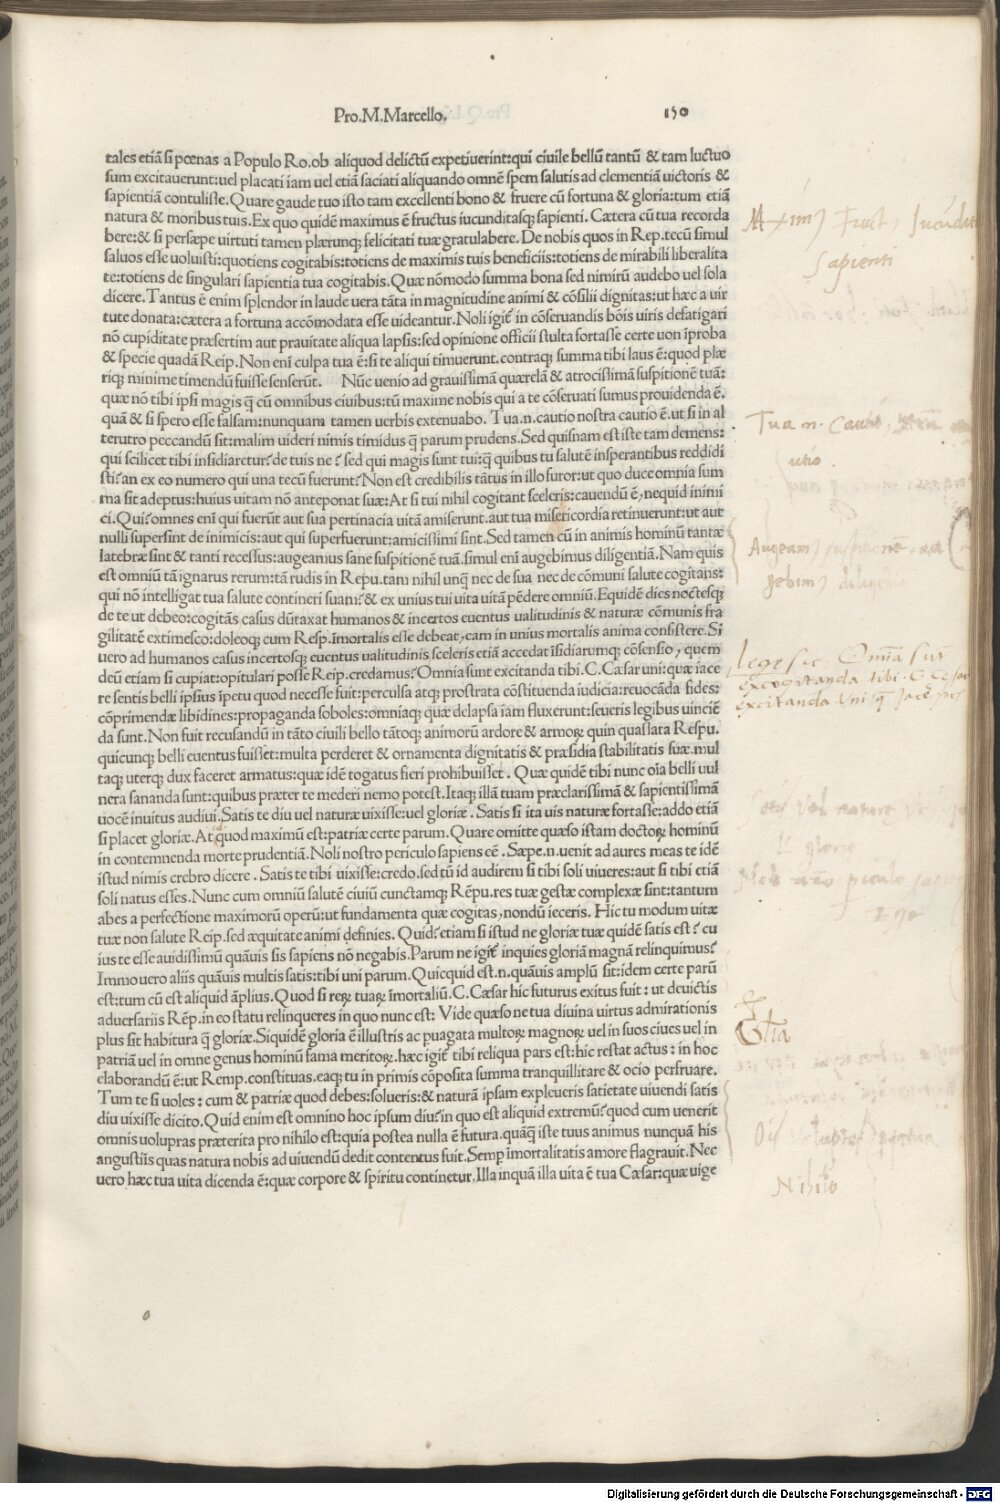 Pro.M.Marcello. 150
tales etiã si pœnas a Populo Ro.ob aliquod delictũ expetiuerint:qui ciuile bellũ tantũ & tam luctuo
sum excitauerunt:uel placati iam uel etiã saciati aliquando omnẽ spem salutis ad clementiã uictoris &
sapientiã contulisse.Quare gaude tuo isto tam excellenti bono & fruere cũ fortuna & gloria:tum etiã
natura & moribus tuis. Ex quo quidẽ maximus ẽ fructus iucunditasqꝫ sapienti. Cætera cũ tua recorda
bere:& si persæpe uirtuti tamen plærunqꝫ felicitati tuæ gratulabere. De nobis quos in Rep.tecũ simul
saluos esse uoluisti:quotiens cogitabis:totiens de maximis tuis beneficiis:totiens de mirabili liberalita
te:totiens de singulari sapientia tua cogitabis. Quæ nõmodo summa bona sed nimirũ audebo uel sola
dicere. Tantus ẽ enim splendor in laude uera tãta in magnitudine animi & cõsilii dignitas:ut hæc a uir
tute donata:cætera a fortuna accõmodata esse uideantur. Noli igit̃ in cõseruandis bõis uiris defatigari
nõ cupiditate præsertim aut prauitate aliqua lapsis:sed opinione officii stulta fortasse certe non ĩproba
& specie quadã Reip. Non enĩ culpa tua ẽ:si te aliqui timuerunt.contraqꝫ summa tibi laus ẽ:quod plæ
riqꝫ minime timendũ fuisse senserũt. Nũc uenio ad grauissimã quærelã & atrocissimã suspitionẽ tuã:
quæ nõ tibi ipsi magis q̃ cũ omnibus ciuibus:tũ maxime nobis qui a te cõseruati sumus prouidenda ẽ.
quã & si spero esse falsam:nunquam tamen uerbis extenuabo. Tua.n.cautio nostra cautio ẽ.ut si in al
terutro peccandũ sit:malim uideri nimis timidus q̃ parum prudens. Sed quisnam est iste tam demens:
qui scilicet tibi insidiaretur?de tuis ne? sed qui magis sunt tui:q̃ quibus tu salutẽ insperantibus reddidi
sti?an ex eo numero qui una tecũ fuerunt? Non est credibilis tãtus in illo furor:ut quo duce omnia sum
ma sit adeptus:huius uitam nõ anteponat suæ:At si tui nihil cogitant sceleris:cauendũ ẽ,nequid inimi
ci. Qui?omnes enĩ qui fuerũt aut sua pertinacia uitã amiserunt.aut tua misericordia retinuerunt:ut aut
nulli supersint de inimicis:aut qui superfuerunt:amicissimi sint. Sed tamen cũ in animis hominũ tantæ
latebræ sint & tanti recessus:augeamus sane suspitionẽ tuã.simul enĩ augebimus diligentiã. Nam quis
est omniũ tã ignarus rerum:tã rudis in Repu.tam nihil unq̃ nec de sua nec de cõmuni salute cogitans:
qui nõ intelligat tua salute contineri suam? & ex unius tui uita uitã pẽdere omniũ. Equidẽ dies noctesqꝫ
de te ut debeo:cogitãs casus dũtaxat humanos & incertos euentus ualitudinis & naturæ cõmunis fra
gilitatẽ extimesco:doleoqꝫ cum Resp.ĩmortalis esse debeat,eam in unius mortalis anima consistere. Si
uero ad humanos casus incertosqꝫ euentus ualitudinis sceleris etiã accedat ĩsidiarumqꝫ cõsensio, quem
deũ etiam si cupiat:opitulari posse Reip.credamus? Omnia sunt excitanda tibi.C.Cæsar uni:quæ iace
re sentis belli ipsius ĩpetu quod necesse fuit:perculsa atqꝫ prostrata cõstituenda iudicia:reuocãda fides:
cõprimendæ libidines:propaganda soboles:omniaqꝫ quæ delapsa iam fluxerunt:seueris legibus uinciẽ
da sunt. Non fuit recusandũ in tãto ciuili bello tãtoqꝫ animorũ ardore & armoꝝ quin quassata Respu.
quicunqꝫ belli euentus fuisset:multa perderet & ornamenta dignitatis & præsidia stabilitatis suæ.mul
taqꝫ uterqꝫ dux faceret armatus:quæ idẽ togatus fieri prohibuisset. Quæ quidẽ tibi nunc oĩa belli uul
nera sananda sunt:quibus præter te mederi nemo potest. Itaqꝫ illã tuam præclarissimã & sapientissimã
uocẽ inuitus audiui. Satis te diu uel naturæ uixisse:uel gloriæ. Satis si ita uis naturæ fortasse:addo etiã
si placet gloriæ. At quod maximũ est:patriæ certe parum. Quare omitte quæso istam doctoꝝ hominũ
in contemnenda morte prudentiã. Noli nostro periculo sapiens eẽ. Sæpe.n.uenit ad aures meas te idẽ
istud nimis crebro dicere. Satis te tibi uixisse:credo.sed tũ id audirem si tibi soli uiueres:aut si tibi etiã
soli natus esses. Nunc cum omniũ salutẽ ciuiũ cunctamqꝫ Rẽpu.res tuæ gestæ complexæ sint:tantum
abes a perfectione maximorũ operũ:ut fundamenta quæ cogitas,nondũ ieceris. Hic tu modum uitæ
tuæ non salute Reip.sed æquitate animi definies. Quid?etiam si istud ne gloriæ tuæ quidẽ satis est? cu
ius te esse auidissimũ quãuis sis sapiens nõ negabis. Parum ne igit̃ inquies gloriã magnã relinquimus?
Immo uero aliis quãuis multis satis:tibi uni parum. Quicquid est.n.quãuis amplũ sit:idem certe parũ
est:tum cũ est aliquid ãplius. Quod si reꝝ tuaꝝ ĩmortaliũ.C.Cæsar hic futurus exitus fuit: ut deuictis
aduersariis Rẽp.in eo statu relinqueres in quo nunc est: Vide quæso ne tua diuina uirtus admirationis
plus sit habitura q̃ gloriæ. Siquidẽ gloria ẽ illustris ac puagata multoꝝ magnoꝝ uel in suos ciues uel in
patriã uel in omne genus hominũ fama meritoꝝ.hæc igit̃ tibi reliqua pars est:hic restat actus: in hoc
elaborandũ ẽ:ut Remp.constituas.eaqꝫ tu in primis cõposita summa tranquillitate & ocio perfruare.
Tum te si uoles: cum & patriæ quod debes:solueris:& naturã ipsam expleueris satietate uiuendi satis
diu uixisse dicito. Quid enim est omnino hoc ipsum diu?in quo est aliquid extremũ?quod cum uenerit
omnis uoluptas præterita pro nihilo est:quia postea nulla ẽ futura.quãq̃ iste tuus animus nunquã his
angustiis quas natura nobis ad uiuendũ dedit contentus fuit. Semp ĩmortalitatis amore flagrauit. Nec
uero hæc tua uita dicenda ẽ:quæ corpore & spiritu continetur. Illa inquã illa uita ẽ tua Cæsar:quæ uige
sapienti
Tua .n.
Omĩa sut
excogitanda tibi C Cesar
excitanda Uni
Glia
Nihilo
Digitalisierung gefördert durch die Deutsche Forschungsgemeinschaft - DFG